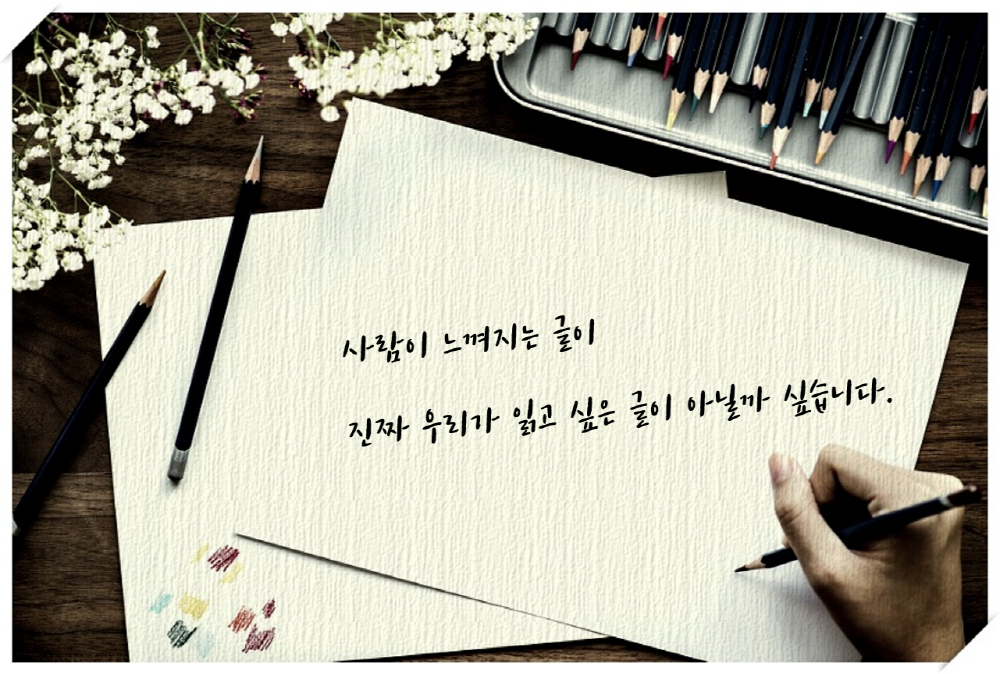 사람이 느껴지는 글이
진짜 우리가 읽고 싶은 글이 아닐까 싶습니다.